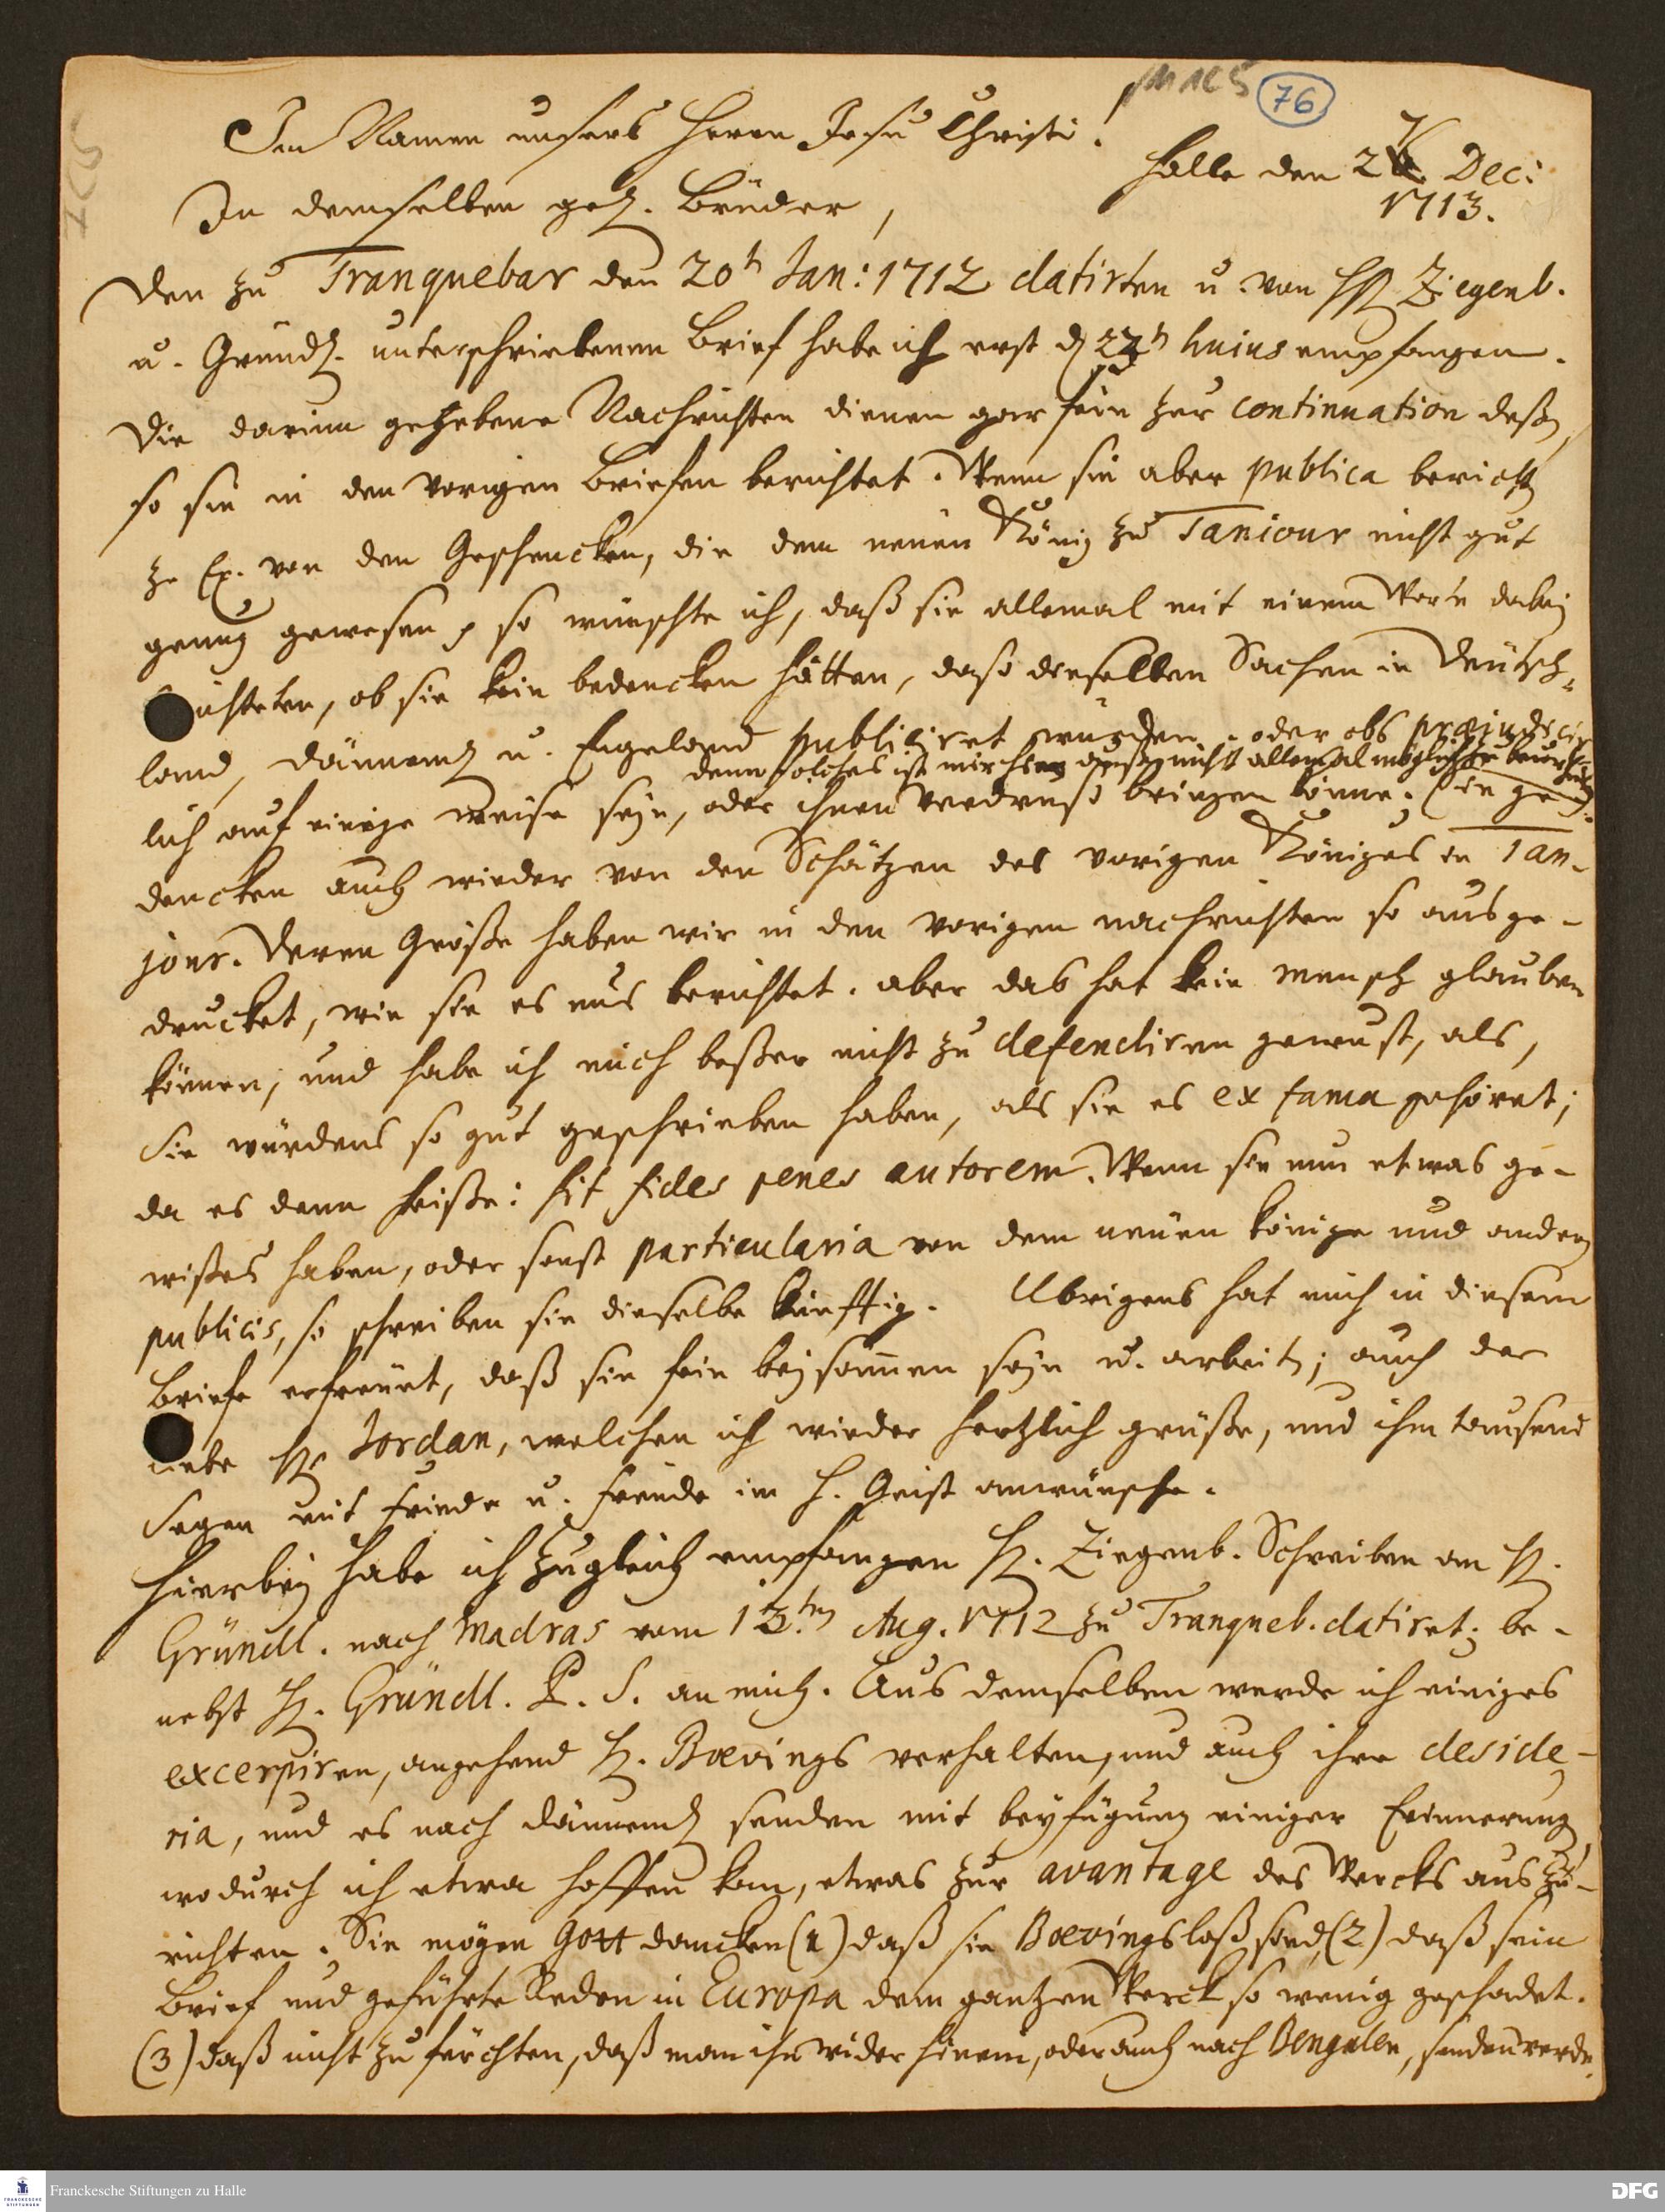 M 1 C 5
76
Im Namen unsers Herrn Jesu Christi!
Halle den 26. Dec:
1713.
In demselben gel. Brüder,
Den zu Tranquebar den 20t Jan: 1712 datirten u. von HH Ziegenb.
u. Gründl. unterschriebenen Brief habe ich erst d 22t huius empfangen.
Die darinn gegebene Nachrichten dienen gar fein zur continuation deßen,
so sie in den vorigen Briefen berichtet. Wenn sie aber publica berichten
z. Ex. von den Geschencken, die dem neuen König zu Taniour nicht gut
genug gewesen, so wünschte ich, daß sie allemal mit einem Worte dabey
ichteten, ob sie kein bedencken hätten, daß dieselben Sachen in Deutsch-
land, Dännem u. Engeland publiciret würden, oder obs præjudicir
denn solches ist mir hier draußen nicht allemal möglich zu beurtheilen
lich auf einige weise seyn, oder ihnen Verdruß bringen könne. Sie ge-
dencken auch wieder von den Schätzen des vorigen Königes in Tan-
jour. Deren Größe haben wir in den vorigen nachrichten so ausge-
drucket, wie sie es uns berichtet. aber das hat kein mensch glauben
können, und habe ich mich beßer nicht zu defendiren gewust, als,
Sie würdens so gut geschrieben haben, als sie es ex fama gehöret;
da es denn heiße: sit fides penes autorem. Wenn sie nun etwas ge-
wißes haben, oder sonst particularia von dem neuen könige und andern
publicis, so schreiben sie dieselbe künfftig. Ubrigens hat mich in diesem
Briefe erfreuet, daß sie fein beysammen seyn u. arbeiten; auch der
liebe H. Jordan, welchen ich wieder hertzlich grüße, und ihm tausend
Segen mit Friede u. Freude im H. Geist anwünsche.
Hierbey habe ich zugleich empfangen H. Ziegenb. Schreiben an H.
Gründl. nach Madras vom 13.ten Aug. 1712 zu Tranqueb. datiret; be-
nebst H. Gründl. P. S. an mich. Aus demselben werde ich einiges
excerpiren, angehend H. Bövings verhalten, und auch ihre deside-
ria, und es nach Dännem senden mit beyfügung einiger Erinnerung
wodurch ich etwa hoffen kan, etwas zur avantage des Wercks auszu-
richten. Sie mögen Gott dancken (1) daß sie Bövings loß sind (2) daß sein
Brief und geführte Reden in Europa dem gantzen Werck so wenig geschadet.
(3) daß nicht zu fürchten, daß man ihn wider hinein, oder auch nach Bengalen, senden werde.
Franckesche Stiftungen zu Halle
FRANCKESCHE STIFTUNGEN
DFG